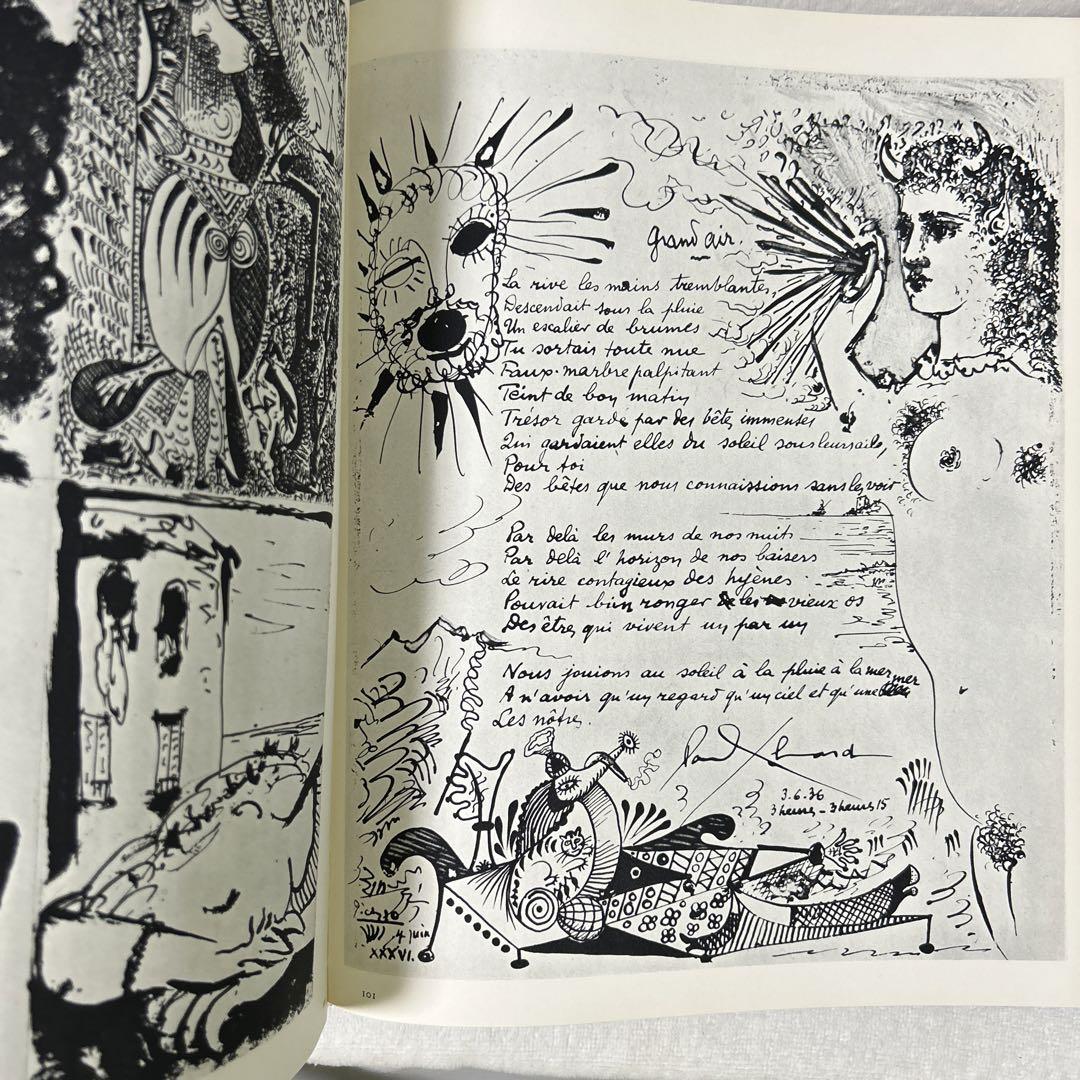 Grand air.
La rive les mains tremblantes
Descendait sous la pluie
Un escalier de brumes
Tu sortais toute nue
Faux marbre palpitant
Teint de bon matin
Trésor gardé par des bêtes immenses
Qui gardaient elles du soleil sous leurs ailes
Pour toi
Des bêtes que nous connaissions sans les voir
Par delà les murs de nos nuits
Par delà l'horizon de nos baisers
Le rire contagieux des hyènes
Pouvait bien ronger vieux os
Des êtres qui vivent un par un
Nous jouions au soleil à la pluie à la mer
A n'avoir qu'un regard qu'un ciel et qu'une mer
Les nôtres.
Paul Eluard
3.6.36
3 heures – 3 heures 15
Picasso
4 juin
XXXVI.
101